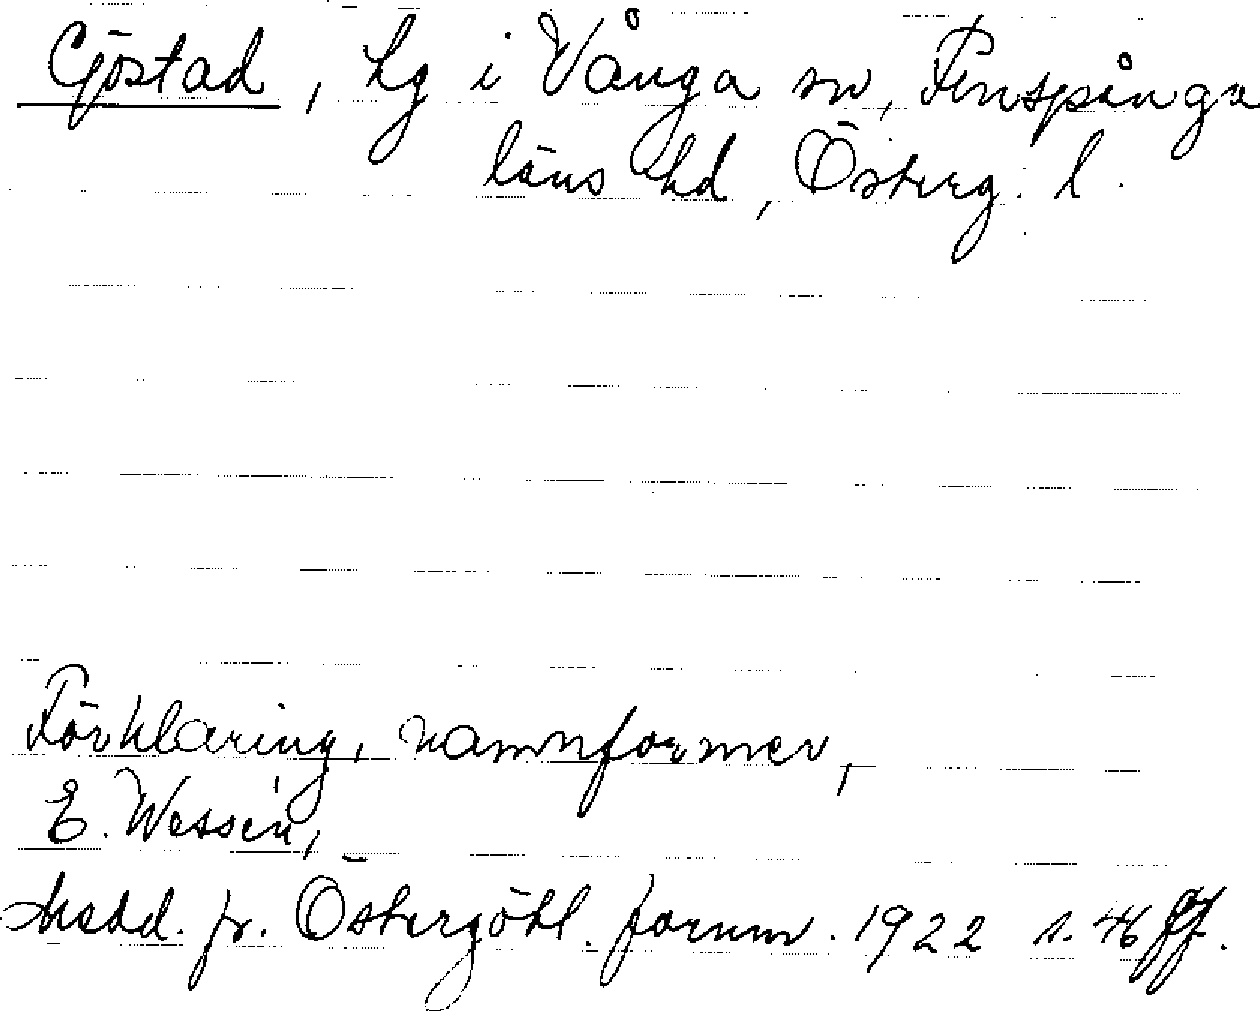 Göstad, hg i Vånga sn, Finspånga
läns hd, Österg. l.
Förklaring, namnformer,
E. Wessén,
Medd. fr. Östergötl. fornm. 1922 s. 46 ff.